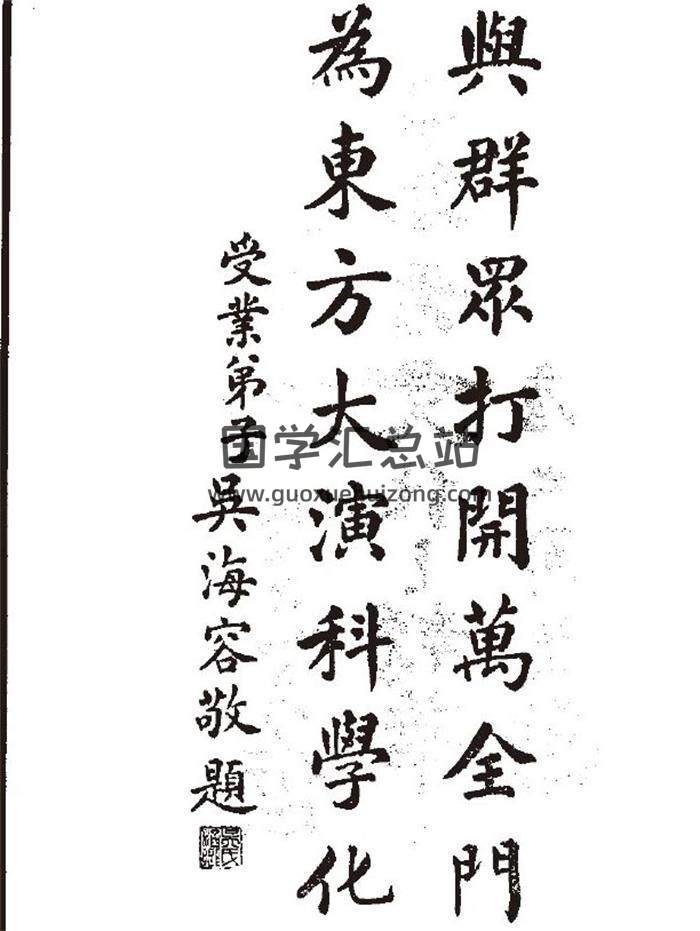 與群眾打開萬全門
為東方大演科學化
受業弟子吳海容敬題
国学汇总站
www.guoxuehuizong.com